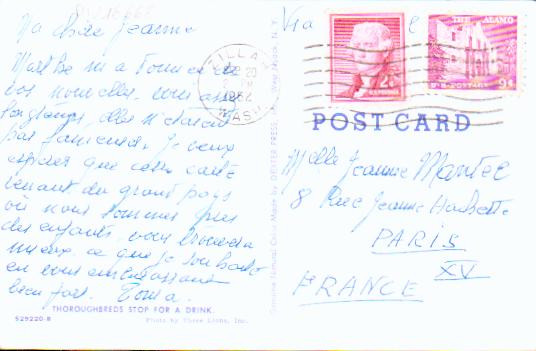 Ma chère Jeanne
Marthe m'a donné de
vos nouvelles, vous
longtemps elles n'étaient
pas fameuses. Je veux
espérer que cette carte
venant du grand pays
où nous sommes près
des enfants, vous trouvera
mieux, ce que je souhaite
en vous embrassant
bien fort.
THOROUGHBREDS STOP FOR A DRINK.
S29220-R
Photo by Three Lions, Inc.
Genuine Natural Color Made by DEXTER PRESS, Inc., West Nyack, N. Y.
Via
ZILLAH
20
1962
WASH
THE ALAMO
U.S. POSTAGE 9¢
POST CARD
Melle Jeanne Mantel
8 Rue Jeanne Hachette
PARIS
XV
FRANCE